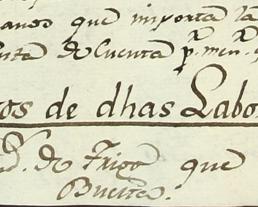 anos que importa la
de Cuenta pr. men.
os de dhas Labo
de Trigo que